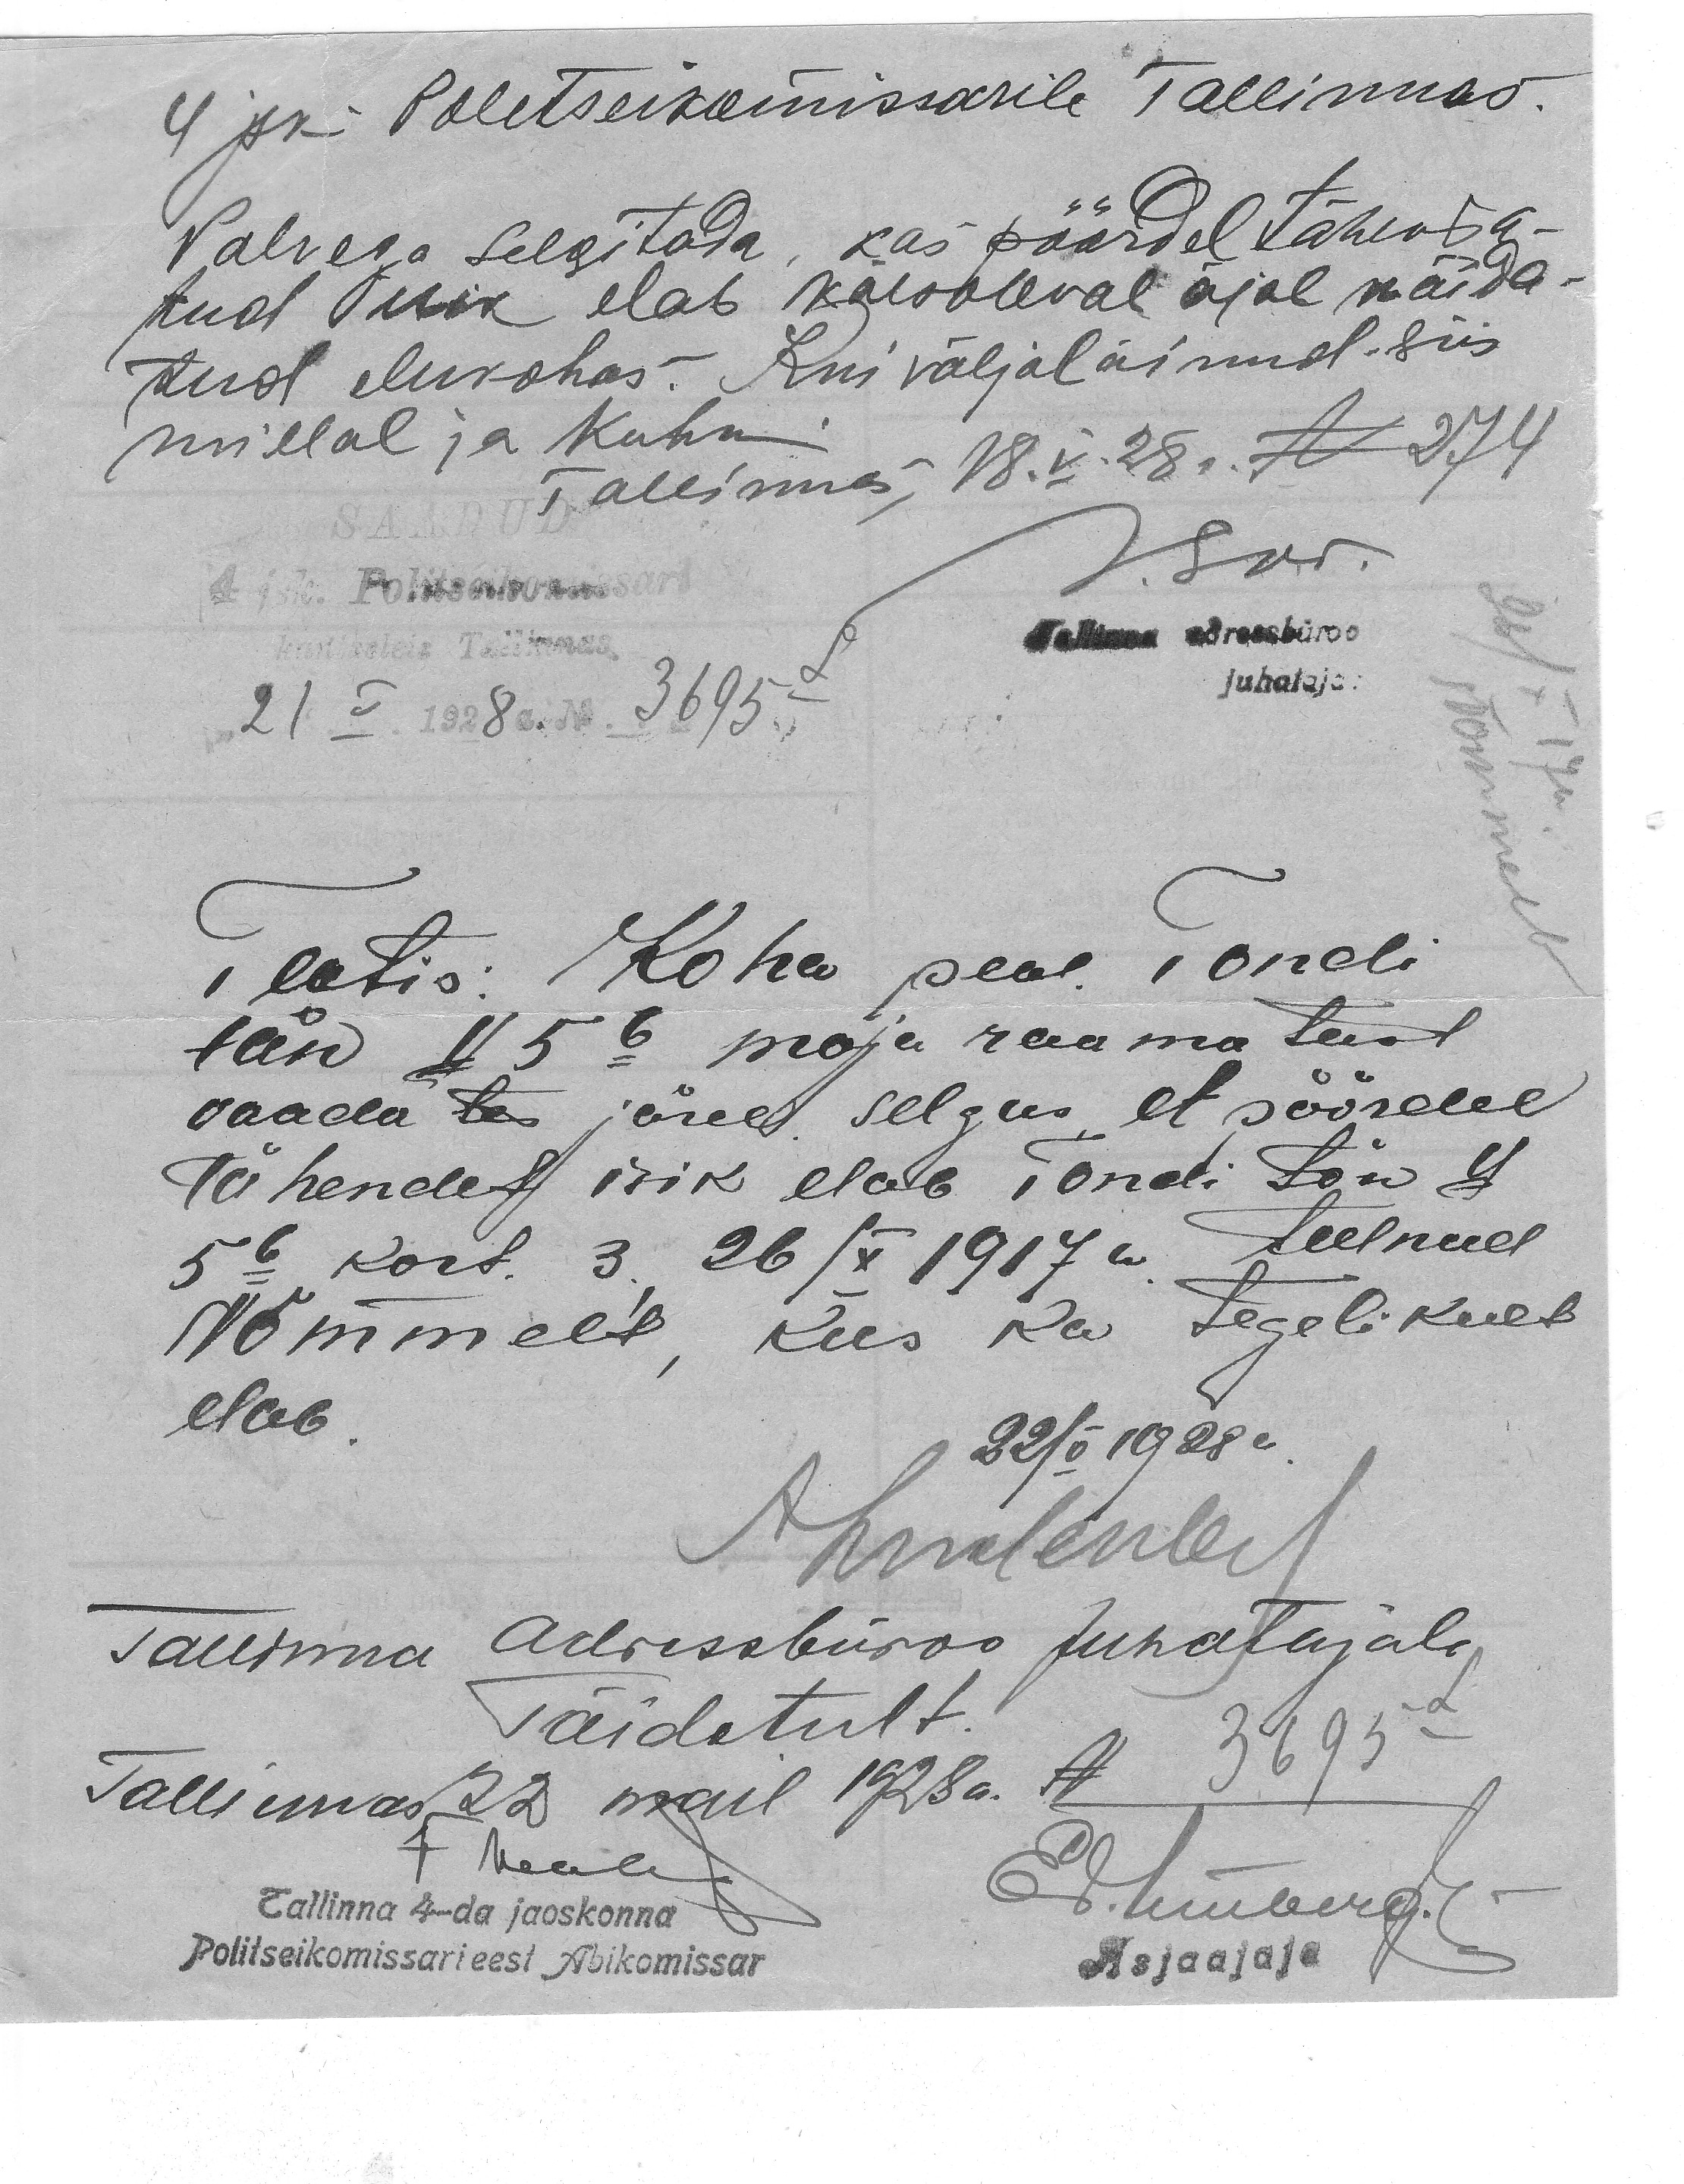 4 jsk. Politseikomissarile Tallinnas.
Palvega selgitada, kas pöördel tähenda-
tud isik elab käesoleval ajal näida-
tud elukohas. Kui väljaläinud siis
millal ja kuhu.
Tallinnas, 18.V.28 a. № 274
SAADUD
4 jsk. Politseikomissari
kantseleis Tallinnas.
21 V 1928 a. № 3695
Tallinna adressbüroo
juhataja:
26/X-17 a.
Nõmmelt
Teatis: Koha peal Tondi
tän № 5 b maja raamatust
vaadates järel selgus, et pöördel
tähendet isik elab Tondi tän №
5 b kort. 3. 26/X 1917 a. tulnud
Nõmmelt, kus ka tegelikult
elab.
22/V 1928 a.
Tallinna Adressbüroo Juhatajale
Täidetult.
Tallinnas 22 mail 1928 a. № 3695
Tallinna 4-da jaoskonna
Politseikomissari eest Abikomissar
Asjaajaja